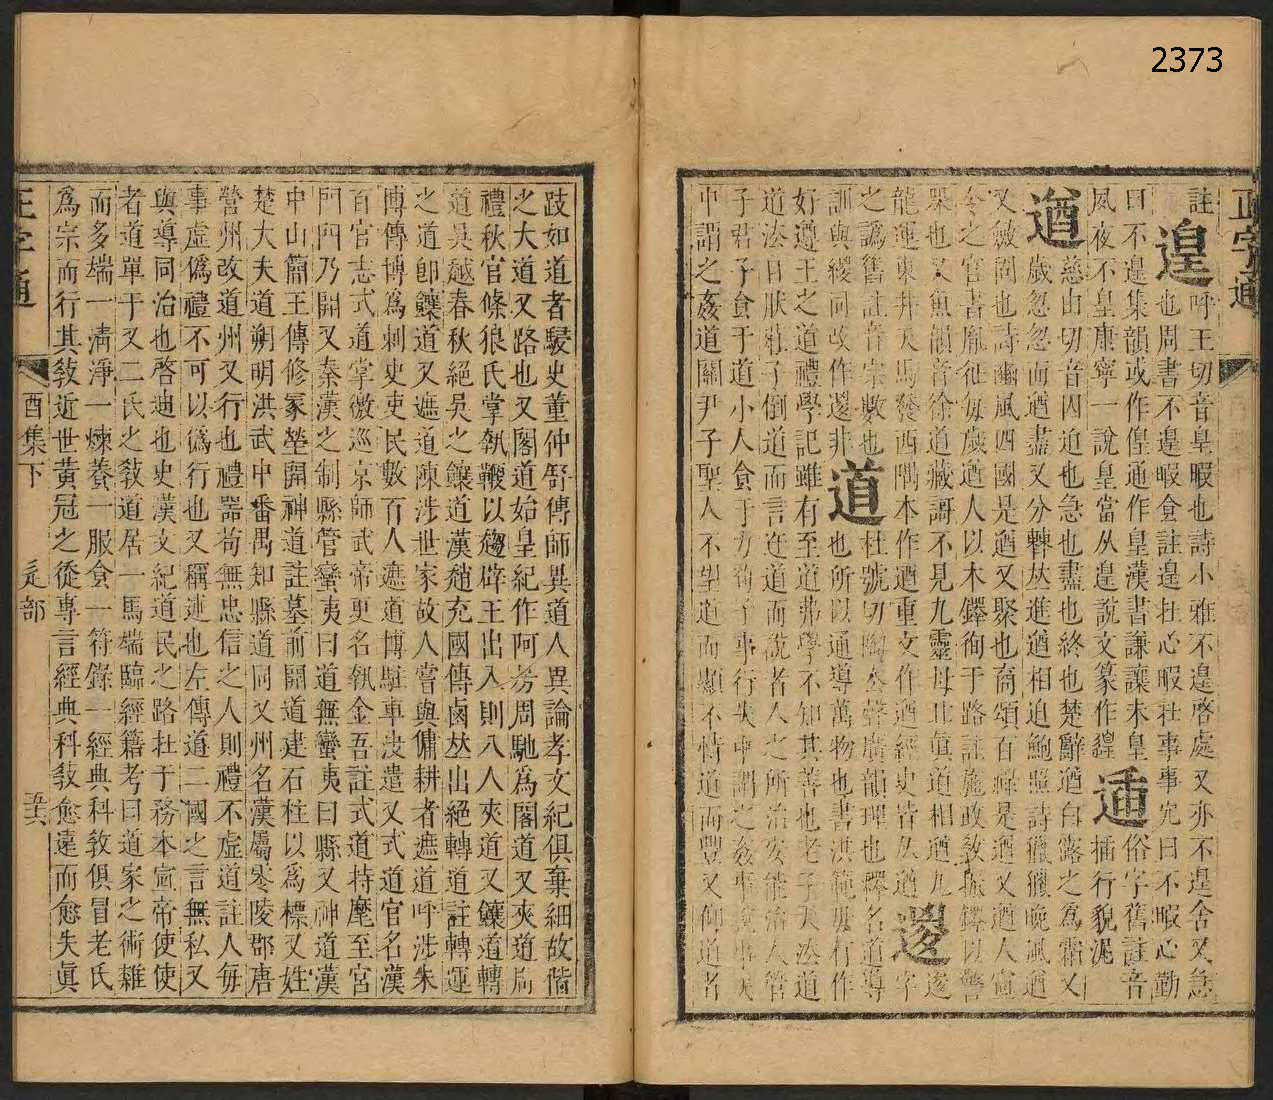 2373
正字通
註遑呼王切音皇暇也詩小雅不遑啓處又亦不遑舍又急
也周書不遑暇食註遑在心暇在事事完曰不暇心勤
曰不遑集韻或作偟通作皇漢書謙讓未皇遖俗字舊註音
夙夜不皇康寧一說皇當从遑說文篆作 插行貌泥
遒慈由切音囚迫也急也盡也終也楚辭遒白露之為霜又
歲忽忽而遒盡又分轡竝進遒相迫鮑照詩獵獵晚風遒
又斂固也詩豳風四國是遒又聚也商頌百祿是遒又遒人宣
令之官書胤征每歲遒人以木鐸徇于路註施政敎振鐸以警
眾也又魚韻音徐道藏謌不見九靈母北眞道相遒九逡
龍運東井天馬發西隅本作逎重文作遒經史皆从遒 字
之譌舊註音宗數也道杜號切陶去聲廣韻理也釋名道導
訓與緩同改作 非也所以通導萬物也書洪範毋有作
好遵王之道禮學記雖有至道弗學不知其善也老子天法道
道法自然莊子倒道而言迕道而說者人之所治安能治人管
子君子食于道小人食于力荀子事行失中謂之姦事說事失
中謂之姦道關尹子聖人不望道而歉不恃道而豐又仰道者
跂如道者駸史董仲舒傳師異道人異論孝文紀俱棄細故偕
之大道又路也又閣道始皇紀作阿房周馳為閣道又夾道周
禮秋官條狼氏掌執鞭以趨辟王出入則八人夾道又饟道轉
道吳越春秋絕吳之饟道漢趙充國傳鹵竝出絕轉道註轉運
之道卽饟道又遮道陳涉世家故人嘗與傭耕者遮道呼涉朱
博傳博為刺史吏民數百人遮道博駐車決遣又式道官名漢
百官志式道掌徼巡京師武帝更名執金吾註式道持麾至宮
門門乃開又秦漢之制縣管蠻夷曰道無蠻夷曰縣又神道漢
中山簡王傳修冢塋開神道註墓前開道建石柱以為標又姓
楚大夫道朔明洪武中番禺知縣道同又州名漢屬零陵郡唐
營州改道州又行也禮器苟無忠信之人則禮不虛道註人每
事虛僞禮不可以僞行也又稱述也左傳道二國之言無私又
與導同治也啓迪也史漢文紀道民之路在于務本宣帝使使
者道單于又二氏之敎道居一馬端臨經籍考曰道家之術雜
而多端一淸淨一煉養一服食一符籙一經典科敎俱冒老氏
為宗而行其敎近世黃冠之徒專言經典科敎愈遠而愈失眞
正字通
酉集下
辵部
五六